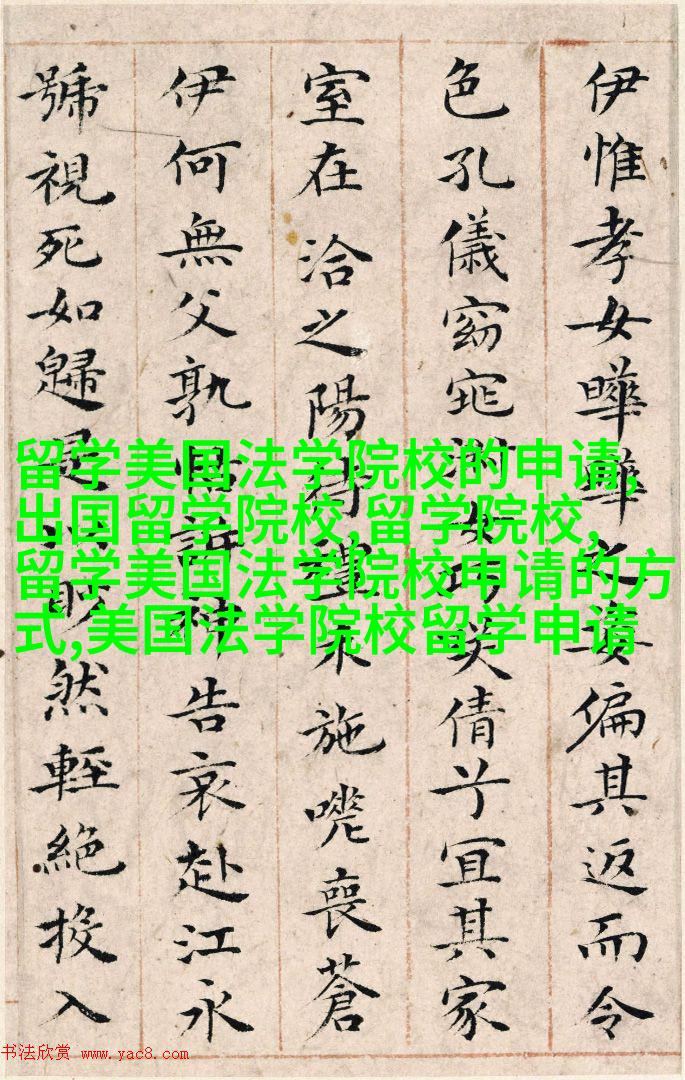 伊惟孝女曄曄之姿偏其返而令
色孔儀窈窕淑女巧笑倩兮宜其家
室在洽之陽待禮未施嗟喪蒼
伊何無父孰怙訴神告哀赴江永
號視死如歸是以眇然輕絕投入
留学美国法学院校的申请,
出国留学院校,留学院校,
留学美国法学院校申请的方
式,美国法学院校留学申请
书法欣赏 www.yac8.com